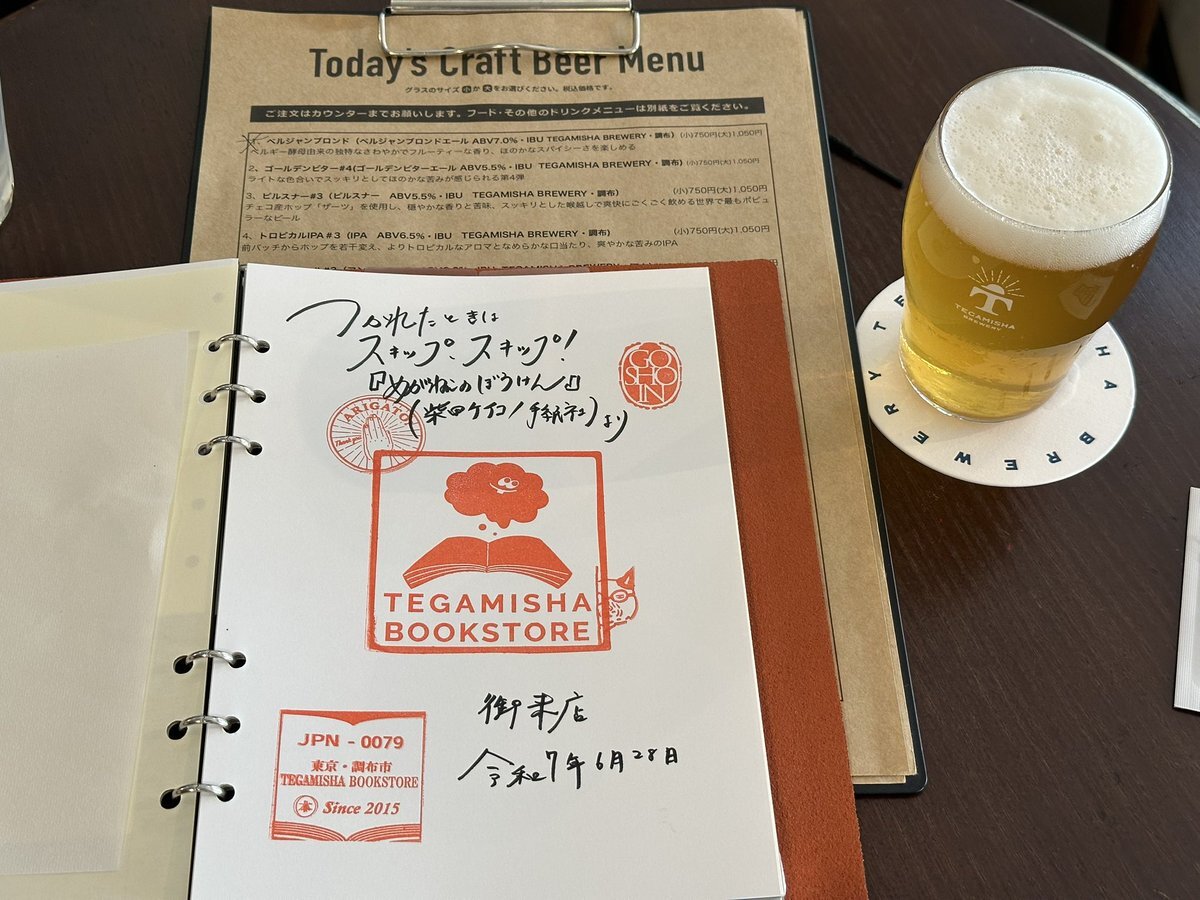 Today's Craft Beer Menu
グラスのサイズ 小 か 大 をお選びください。税込価格です。
ご注文はカウンターまでお願いします。フード・その他のドリンクメニューは別紙をご覧ください。
1、ベルジャンブロンド（ベルジャンブロンドエール ABV7.0%・IBU TEGAMISHA BREWERY・調布）(小)750円(大)1,050円
ベルギー酵母由来の独特なさわやかでフルーティーな香り、ほのかなスパイシーさを楽しめる
2、ゴールデンビター#4(ゴールデンビターエール ABV5.5%・IBU TEGAMISHA BREWERY・調布) (小)750円(大)1,050円
ライトな色合いでスッキリとしてほのかな苦みが感じられる第4弾
3、ピルスナー#3（ピルスナー ABV5.5%・IBU TEGAMISHA BREWERY・調布） (小)750円(大)1,050円
チェコ産ホップ「ザーツ」を使用し、穏やかな香りと苦味、スッキリとした喉越しで爽快にごくごく飲める世界で最もポピュ
ラーなビール
4、トロピカルIPA#3（IPA ABV6.5%・IBU TEGAMISHA BREWERY・調布） (小)750円(大)1,050円
前バッチからホップを若干変え、よりトロピカルなアロマとなめらかな口当たり、爽やかな苦みのIPA
つかれたときは
スキップ、スキップ!
『めがねこのぼうけん』
(柴田ケイコ/手紙社)より
GO
SHO
IN
ARIGATO
Thank you
TEGAMISHA
BOOKSTORE
御来店
令和7年6月28日
JPN - 0079
東京・調布市
TEGAMISHA BOOKSTORE
Since 2015
T
TEGAMISHA
BREWERY
BREWERY TE
HA